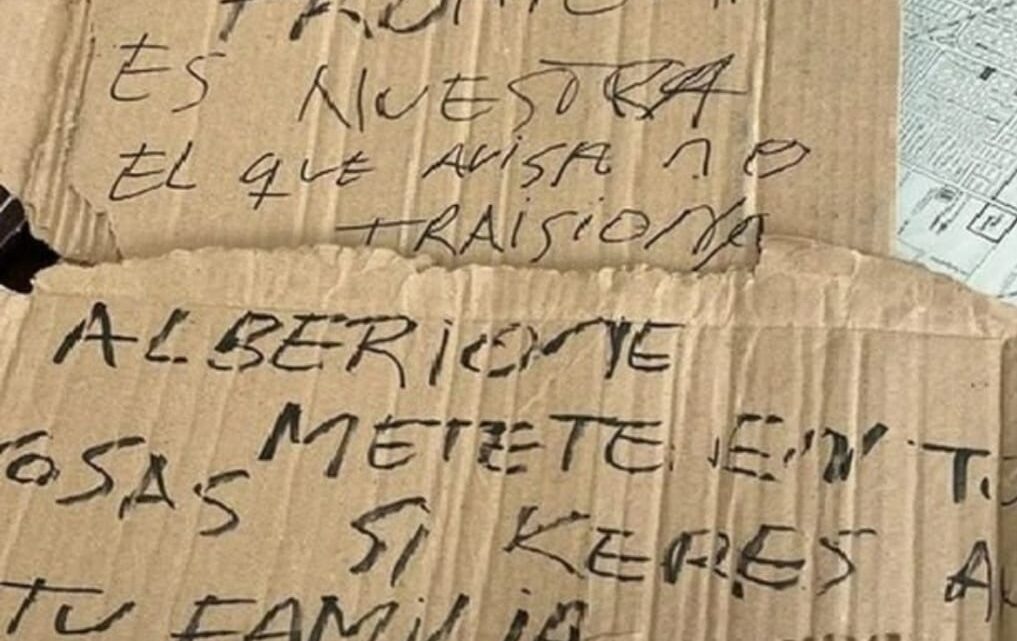 ES NUESTRA
EL QUE AVISA NO
TRAISIONA
ALBERIONE
METETE EN
OSAS SI KERES
TU FAMILIA